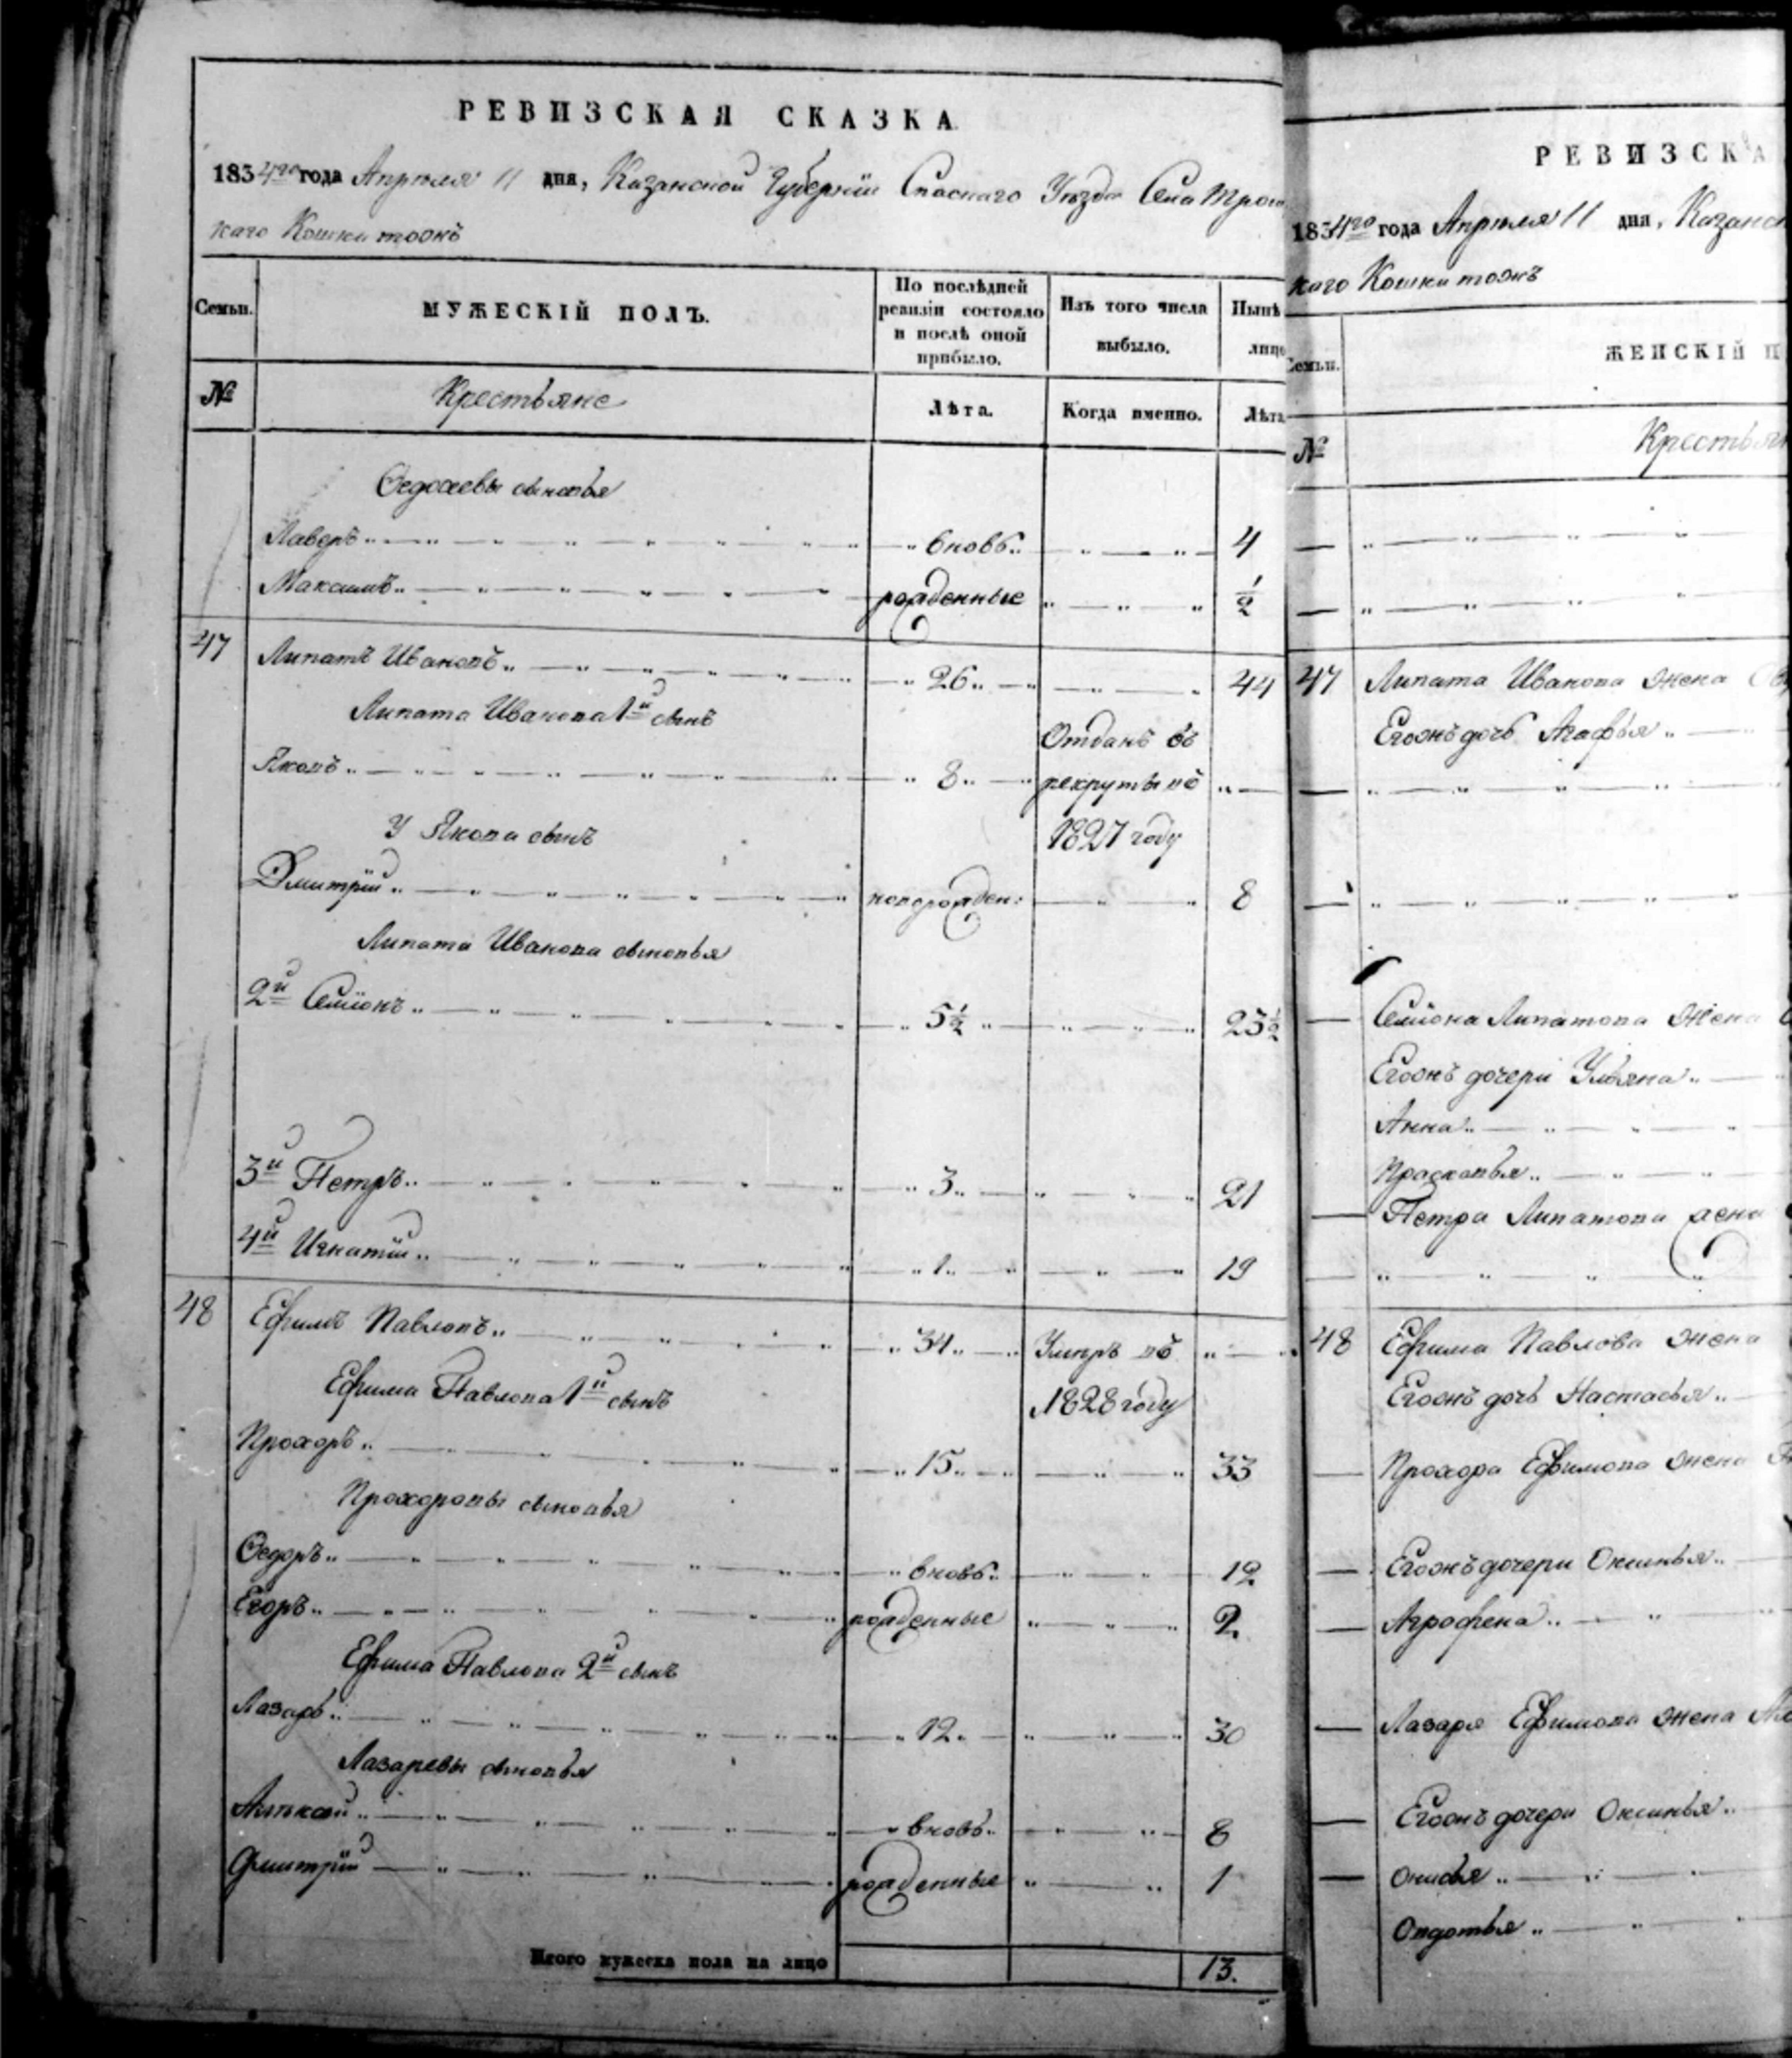 РЕВИЗСКАЯ СКАЗКА
1834го года Апреля 11 дня, Казанской Губернїи Спаскаго Уѣзда Села Трои
каго Кошки тожъ
Семьи.
МУЖЕСКІЙ ПОЛЪ.
По послѣдней ревизіи состояло и послѣ оной прибыло.
Изъ того числа выбыло.
Нынѣ лицо
№
Крестьяне
Лѣта.
Когда именно.
Лѣта
Ѳедоъевы сыновья
Лаверъ вновь 4
Максимъ рожденные 1/2
47 Липатъ Ивановъ 26 44
Липата Иванова 1й сынъ
Яковъ 8 Отданъ въ рекруты въ 1827 году
У Якова сынъ
Дмитрїй новорожден: 8
Липата Иванова сыновья
2й Семїонъ 5 1/2 23 1/2
3й Петръ 3 21
4й Игнатїй 1 19
48 Ефимъ Павловъ 34 Умеръ въ 1828 году
Ефима Павлова 1й сынъ
Прохоръ 15 33
Прохоровы сыновья
Ѳедоръ вновь 12
Егоръ рожденные 2
Ефима Павлова 2й сынъ
Лазарь 12 30
Лазаревы сыновья
Алѣксѣй вновь 8
Дмитрїй рожденные 1
Итого мужеска пола на лицо 13.
РЕВИЗСКА
1834го года Апреля 11 дня, Казанс
каго Кошки тожъ
Семьи.
ЖЕНСКІЙ П
№
Крестьян
47 Липата Иванова жена
Егожъ дочь Агафья
Семїона Липатова жена
Егожъ дочери Ульяна
Анна
Прасковья
Петра Липатова жена
48 Ефима Павлова жена
Егожъ дочь Настасья
Прохора Ефимова жена
Егожъ дочери Оксинья
Агрофена
Лазаря Ефимова жена
Егожъ дочери Оксинья
Онисья
Овдотья